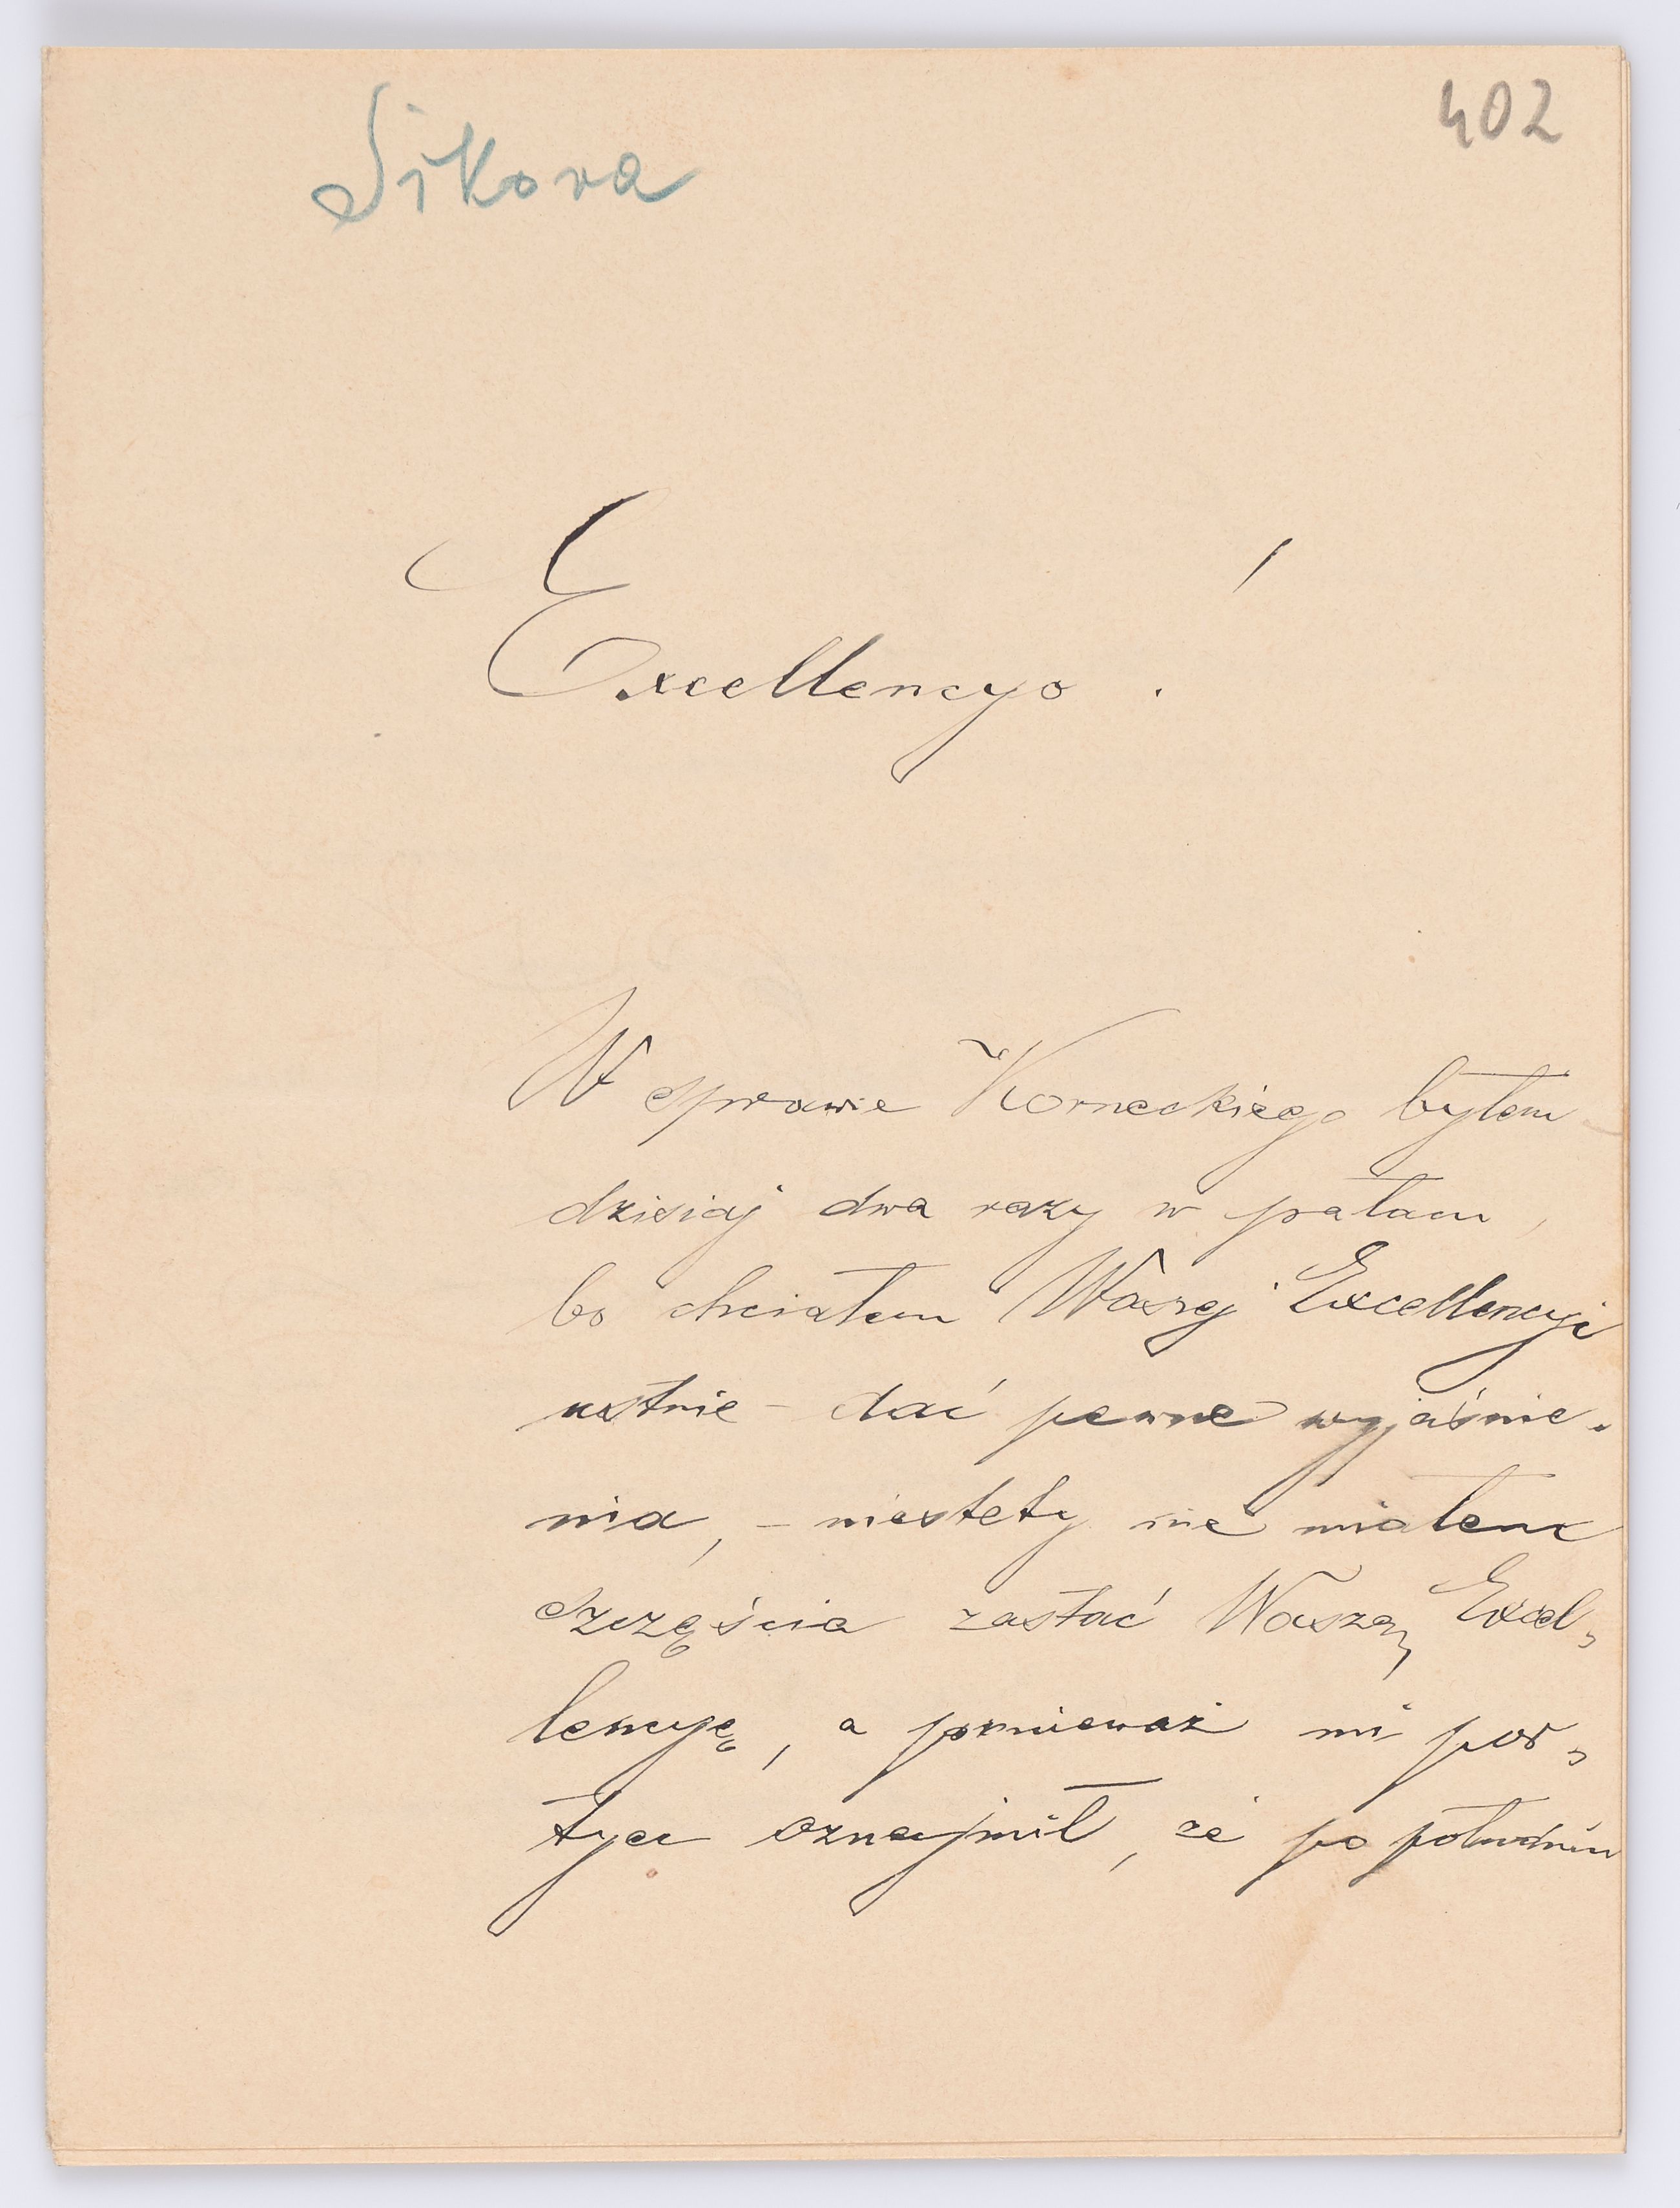 402
Sikora
Excellencyo!
W sprawie Korneckiego byłem
dzisiaj dwa razy w pałacu,
bo chciałem Waszej Excellencyi
ustnie - dać pewne wyjaśnie-
nia, - niestety nie miałem
szczęścia zastać Waszą Excel-
lencyę, a ponieważ mi por-
tyer oznajmił, że po południu